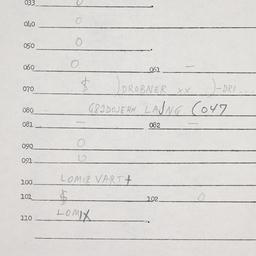 033 0
040 0
050 0
060 0 061 —
070 $ )DROBNER xx )-DRI
080 LAJNG (047
081 — 082 —
090 0
091 0
100 LOMIE VART+
101 $ 102 0
110 LOMIX